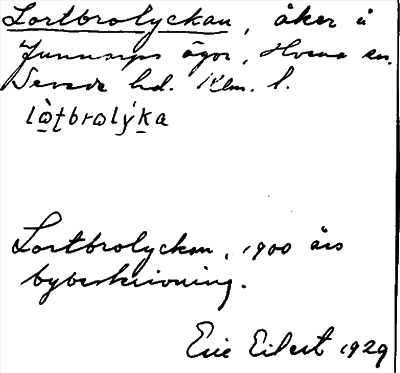 Lortbrolyckan, åker å
Junnarps ägor, Hvena sn.
Sevede hd. Klm. l.
lo̱ṯbrolýḵa
Lortbrolyckan, 1900 års
bybeskrivning.
Eric Eilert 1929